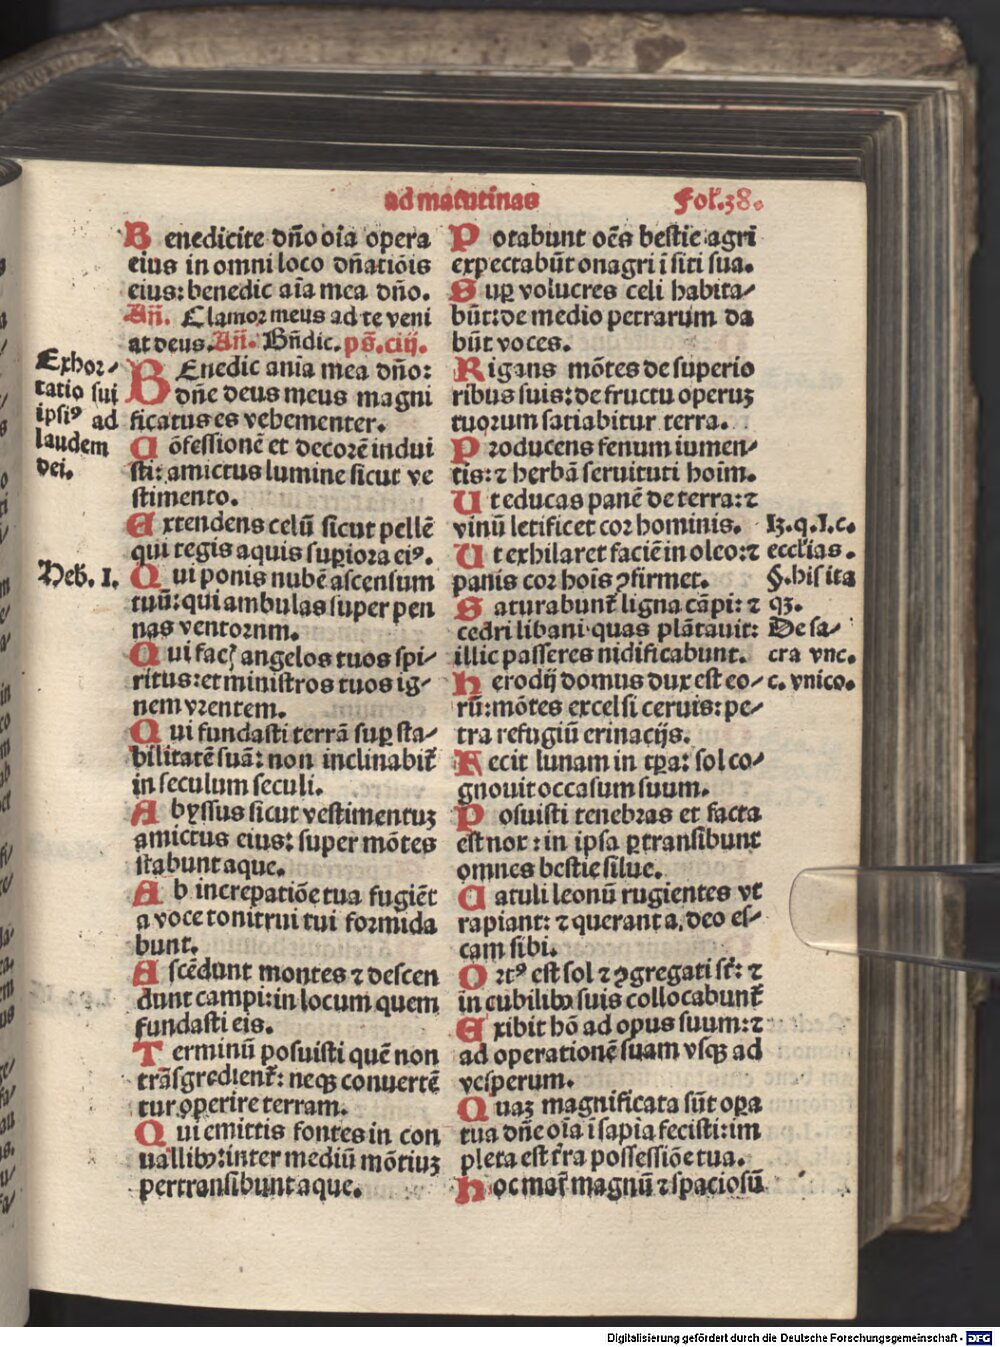 ad matutinas
Fol.38.
Benedicite dño oĩa opera
eius in omni loco dñatiõis
eius: benedic aĩa mea dño.
Añ. Clamor meus ad te veni
at deus. Añ. Bñdic. ps̃.ciij.
BEnedic anĩa mea dño:
dñe deus meus magni
ficatus es vehementer.
Cõfessionẽ et decorẽ indui
sti: amictus lumine sicut ve
stimento.
Extendens celũ sicut pellẽ
qui tegis aquis supiora eiꝰ.
Qui ponis nubẽ ascensum
tuũ: qui ambulas super pen
nas ventornm.
Qui facꝭ angelos tuos spi-
ritus: et ministros tuos ig-
nem vrentem.
Qui fundasti terrã suꝑ sta-
bilitatẽ suã: non inclinabit̃
in seculum seculi.
Abyssus sicut vestimentuꝫ
amictus eius: super mõtes
stabunt aque.
Ab increpatiõe tua fugiẽt
a voce tonitrui tui formida
bunt.
Ascẽdunt montes ⁊ descen
dunt campi: in locum quem
fundasti eis.
Terminũ posuisti quẽ non
trãsgredient̃: neqꝫ conuertẽ
tur operire terram.
Qui emittis fontes in con
uallibꝰ: inter mediũ mõtiuꝫ
pertransibunt aque.
Potabunt oẽs bestie agri
expectabũt onagri ĩ siti sua.
Suꝑ volucres celi habita-
bũt: de medio petrarum da
bũt voces.
Rigans mõtes de superio
ribus suis: de fructu operuꝫ
tuorum satiabitur terra.
Producens fenum iumen-
tis: ⁊ herbã seruituti hoĩm.
Ut educas panẽ de terra: ⁊
vinũ letificet cor hominis.
Ut exhilaret faciẽ in oleo: ⁊
panis cor hoĩs ꝯfirmet.
Saturabunt̃ ligna cãpi: ⁊
cedri libani quas plãtauit:
illic passeres nidificabunt.
Herodij domus dux est eo-
rũ: mõtes excelsi ceruis: pe-
tra refugiũ erinacijs.
Fecit lunam in tꝑa: sol co-
gnouit occasum suum.
Posuisti tenebras et facta
est nox: in ipsa ꝑtransibunt
omnes bestie silue.
Catuli leonũ rugientes vt
rapiant: ⁊ querant a deo es-
cam sibi.
Ortꝰ est sol ⁊ ꝯgregati st̃: ⁊
in cubilibꝰ suis collocabunt̃
Exibit hõ ad opus suum: ⁊
ad operationẽ suam vsqꝫ ad
vesperum.
Quaꝫ magnificata sũt oꝑa
tua dñe oĩa ĩ sapĩa fecisti: im
pleta est t̃ra possessiõe tua.
Hoc mar̃ magnũ ⁊ spaciosũ
Exhor-
tatio sui
ipsiꝰ ad
laudem
dei.
Heb. I.
13.q.I.c.
ecclĩas.
§.his ita
qꝫ.
De sa-
cra vnc.
c. vnico.
Digitalisierung gefördert durch die Deutsche Forschungsgemeinschaft - DFG